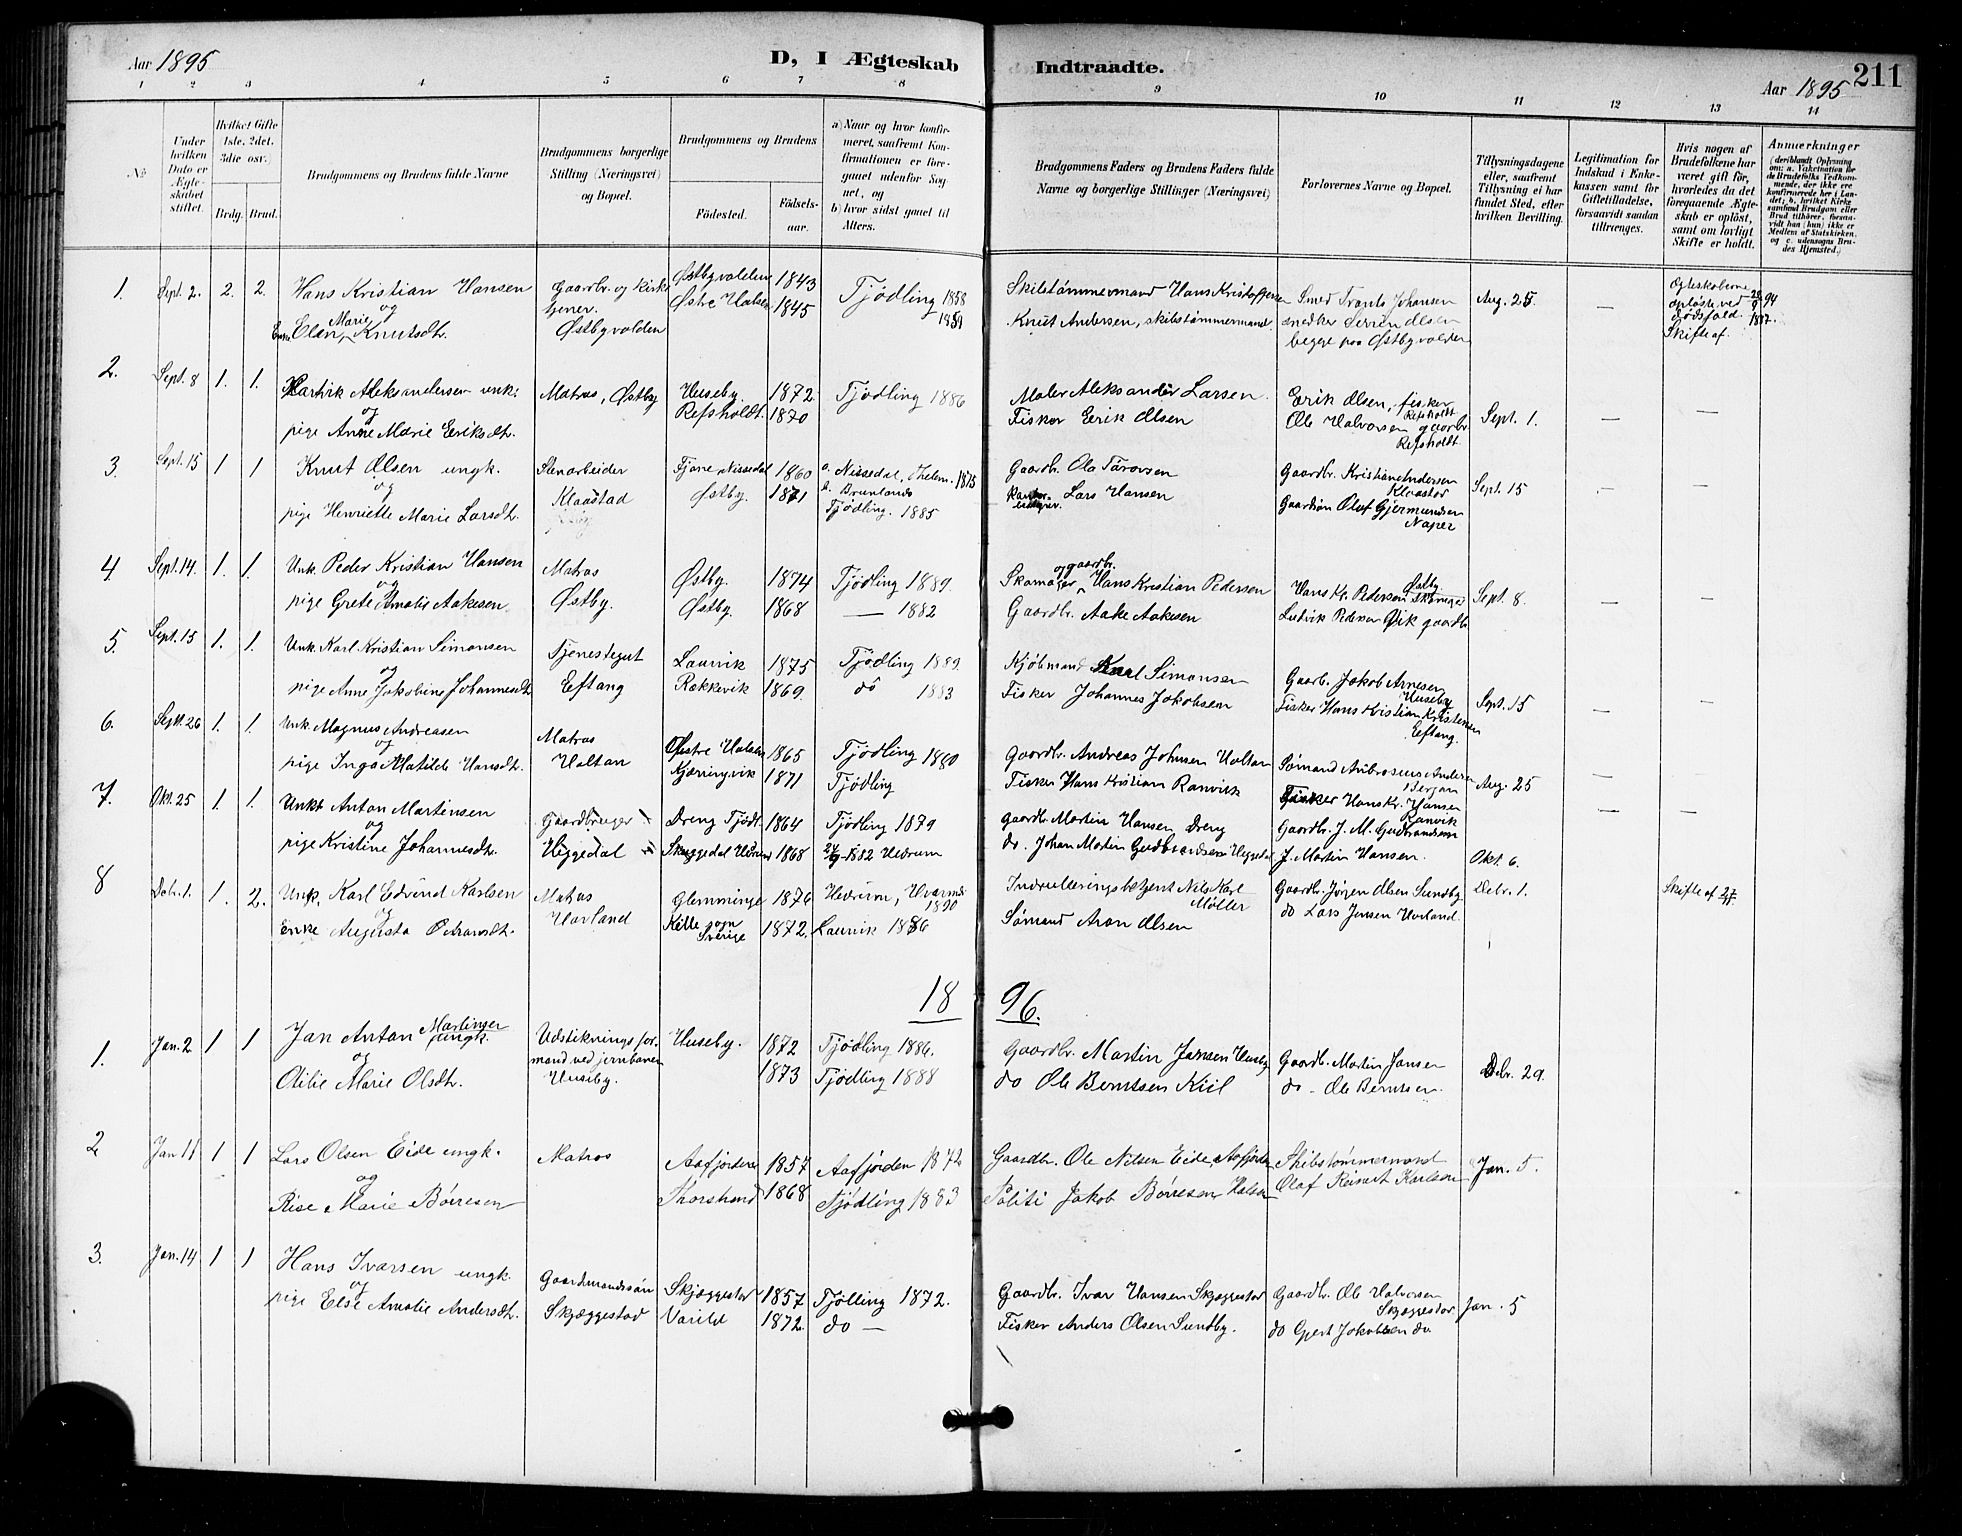 Aar 1895
D, I Ægteskab Indtraadte.
Aar 1895 211
1 2 3 4 5 6 7 8 9 10 11 12 13 14
No
Under hvilken Dato er Ægteskabet stiftet.
Hvilket Gifte 1ste. 2det. 3die osv.)
Brdg. Brud.
Brudgommens og Brudens fulde Navne
Brudgommens borgerlige Stilling (Næringsvei) og Bopæl.
Brudgommens og Brudens
Födested.
Födselsaar.
a) Naar og hvor konfirmeret, saafremt Konfirmationen er foregaaet udenfor Sognet, og
b) hvor sidst gaaet til Alters.
Brudgommens Faders og Brudens Faders fulde Navne og borgerlige Stillinger (Næringsvei)
Forlovernes Navne og Bopæl.
Tillysningsdagene eller, saafremt Tillysning ei har fundet Sted, efter hvilken Bevilling.
Legitimation for Indskud i Enkekassen samt for Giftetilladelse, forsaavidt saadan tiltrænges.
Hvis nogen af Brudefolkene har været gift för, hvorledes da det foregaaende Ægteskab er oplöst, samt om lovligt Skifte er holdt.
Anmerkninger
(deriblandt Oplysning om: a. Vakcination for de Brudefolks Vedkommende, der ikke ere konfirmerede her i Landet; b. hvilket Kirkesamfund Brudgom eller Brud tilhörer, forsaavidt han (hun) ikke er Medlem af Statskirken, og c. udensogns Brudes Hjemsted.)
1. Sept. 2. 2. 2. Hans Kristian Hansen
og
Enke Elen Marie Knutsdh.
Gaardbr. og Kirketjener.
Østbyvolden
Østbyvolden 1843
Østre Halsen 1845
Tjödling 1858
1859
Skibstömmermand Hans Kristofersen
Knut Andersen, skibstömmermand.
Smed Trants Johansen
snedker Sören Olsen
begge paa Østbyvolden
Aug. 25. —
Egteskaberne oplöste ved dödsfald
Skifte af.
2. Sept. 8 1. 1. Aleksandersen unk.
og
pige Anne Marie Eriksdh.
Matros, Østby
Huseby. 1872.
Refsholdt. 1870
Tjödling 1886
Maler Aleksander Larsen.
Fisker Erik Olsen
Erik Olsen, fisker Refsholdt
Ole Halvorsen gaardbr. Refsholdt
Sept. 1. — —
3. Sept. 15 1 1 Knut Olsen ungk.
og
pige Henriette Marie Larsdh.
Stenarbeider
Klaastad
Fjone, Nissedal 1860
Østby. 1871
a. Nissedal, Thelem. 1875
b. Brunlands
Tjödling. 1885
Gaardbr. Ole Tarovsen
Lars Hansen
Gaardbr. Kristian Andersen Klaastad
Gaardsön Oluf Gjermundsen Naper
Sept. 15 — —
4 Sept. 14. 1. 1. Unk. Peder Kristian Hansen
og
pige Grete Amalie Aakesen.
Matros
Østby.
Østby. 1874
Østby. 1868
Tjödling 1889.
— 1882
Skomager og gaardbr. Hans Kristian Pedersen
Gaardbr. Aake Aakesen
Hans Kr. Pedersen Østby Skomager
Ludvik Pedersen Vik gaardbr.
Sept. 8. — —
5. Sept. 15 1. 1. Unk. Karl Kristian Simonsen
og
pige Anne Jakobine Johannesdh.
Tjenestegut
Eftang
Laurvik 1875
Rekkevik 1869.
Tjödling 1889.
do 1883
Kjöbmand Karl Simonsen
Fisker Johannes Jakobsen
Gaardb. Jakob Arnesen Huseby
Fisker Hans Kristian Kristensen Eftang.
Sept. 15 — —
6. Sept. 26 1. 1. Unk. Magnus Andreasen
og
pige Inga Matilde Hansdh.
Matros
Haltan
Østre Halsen 1865
Kjæringvik 1871
Tjödling 1880
Tjödling
Gaardbr. Andreas Johnsen Haltan
Fisker Hans Kristian Ranvik
Sömand Ambrosius Andersen
Fisker Hans Kr. Hansen Ranvik
Aug. 25 — —
7. Okt. 25 1. 1. Unk. Anton Martinsen
og
pige Kristine Johannesdh.
Gaardbruger
Heggedal
Dreng Tjödl. 1864
Skeggedal Hedrum 1868
Tjödling 1879
1882 Hedrum
Gaardbr. Martin Hansen Dreng
do. Johan Martin Gudbrandsen Heggedal
Gaardbr. J. M. Gudbrandsen
J. Martin Hansen.
Okt. 6. — —
8 Debr. 1. 1. 2. Unk. Karl Edvind Karlsen
og
enke Augusta Aransdh.
Matros
Harland
Glemminge 1876
Kille sogn Sverige 1872.
Hedrum, Hvarnes 1890
Laurvik 1886
Indrulleringsbetjent Nils Karl Möller
Sömand Aron Olsen
Gaardbr. Jörgen Olsen Sundby
do Lars Jensen Harland.
Debr. 1.
Skifte af
18 96.
1. Jan. 2 1 1 Jan Anton Martinsen ungk.
og
Otilie Marie Olsdh.
Udstikningsformand ved jernbanen
Huseby.
Huseby. 1872
1873
Tjödling 1886.
Tjödling 1888
Gaardbr. Martin Jansen Huseby
do Ole Berntsen Kiil
Gaardb. Martin Jansen
do - Ole Berntsen.
Debr. 29.
2 Jan 11 1 1 Lars Olsen Eide ungk.
og
Rise Marie Börresen
Matros
Aafjorden 1857
Thorstrand 1868
Aafjorden 1872
Tjödling 1883
Gaardbr. Ole Nilsen Eide, Aafjorden
Politi Jakob Börresen Halsen
Skibstömmermand
Olaf Reinart Karlsen
Jan. 5.
3. Jan. 14 1 1 Hans Ivarsen ungk.
og
pige Else Amalie Andersdh.
Gaardmandssön
Skjæggestad
Skjæggestad 1857
Varild 1872.
Tjölling 1872.
do —
Gaardbr. Ivar Hansen Skjæggestad
Fisker Anders Olsen Sundby.
Gaardbr. Ole Halvorsen Skjæggestad
do Gjert Jakobsen do.
Jan. 5